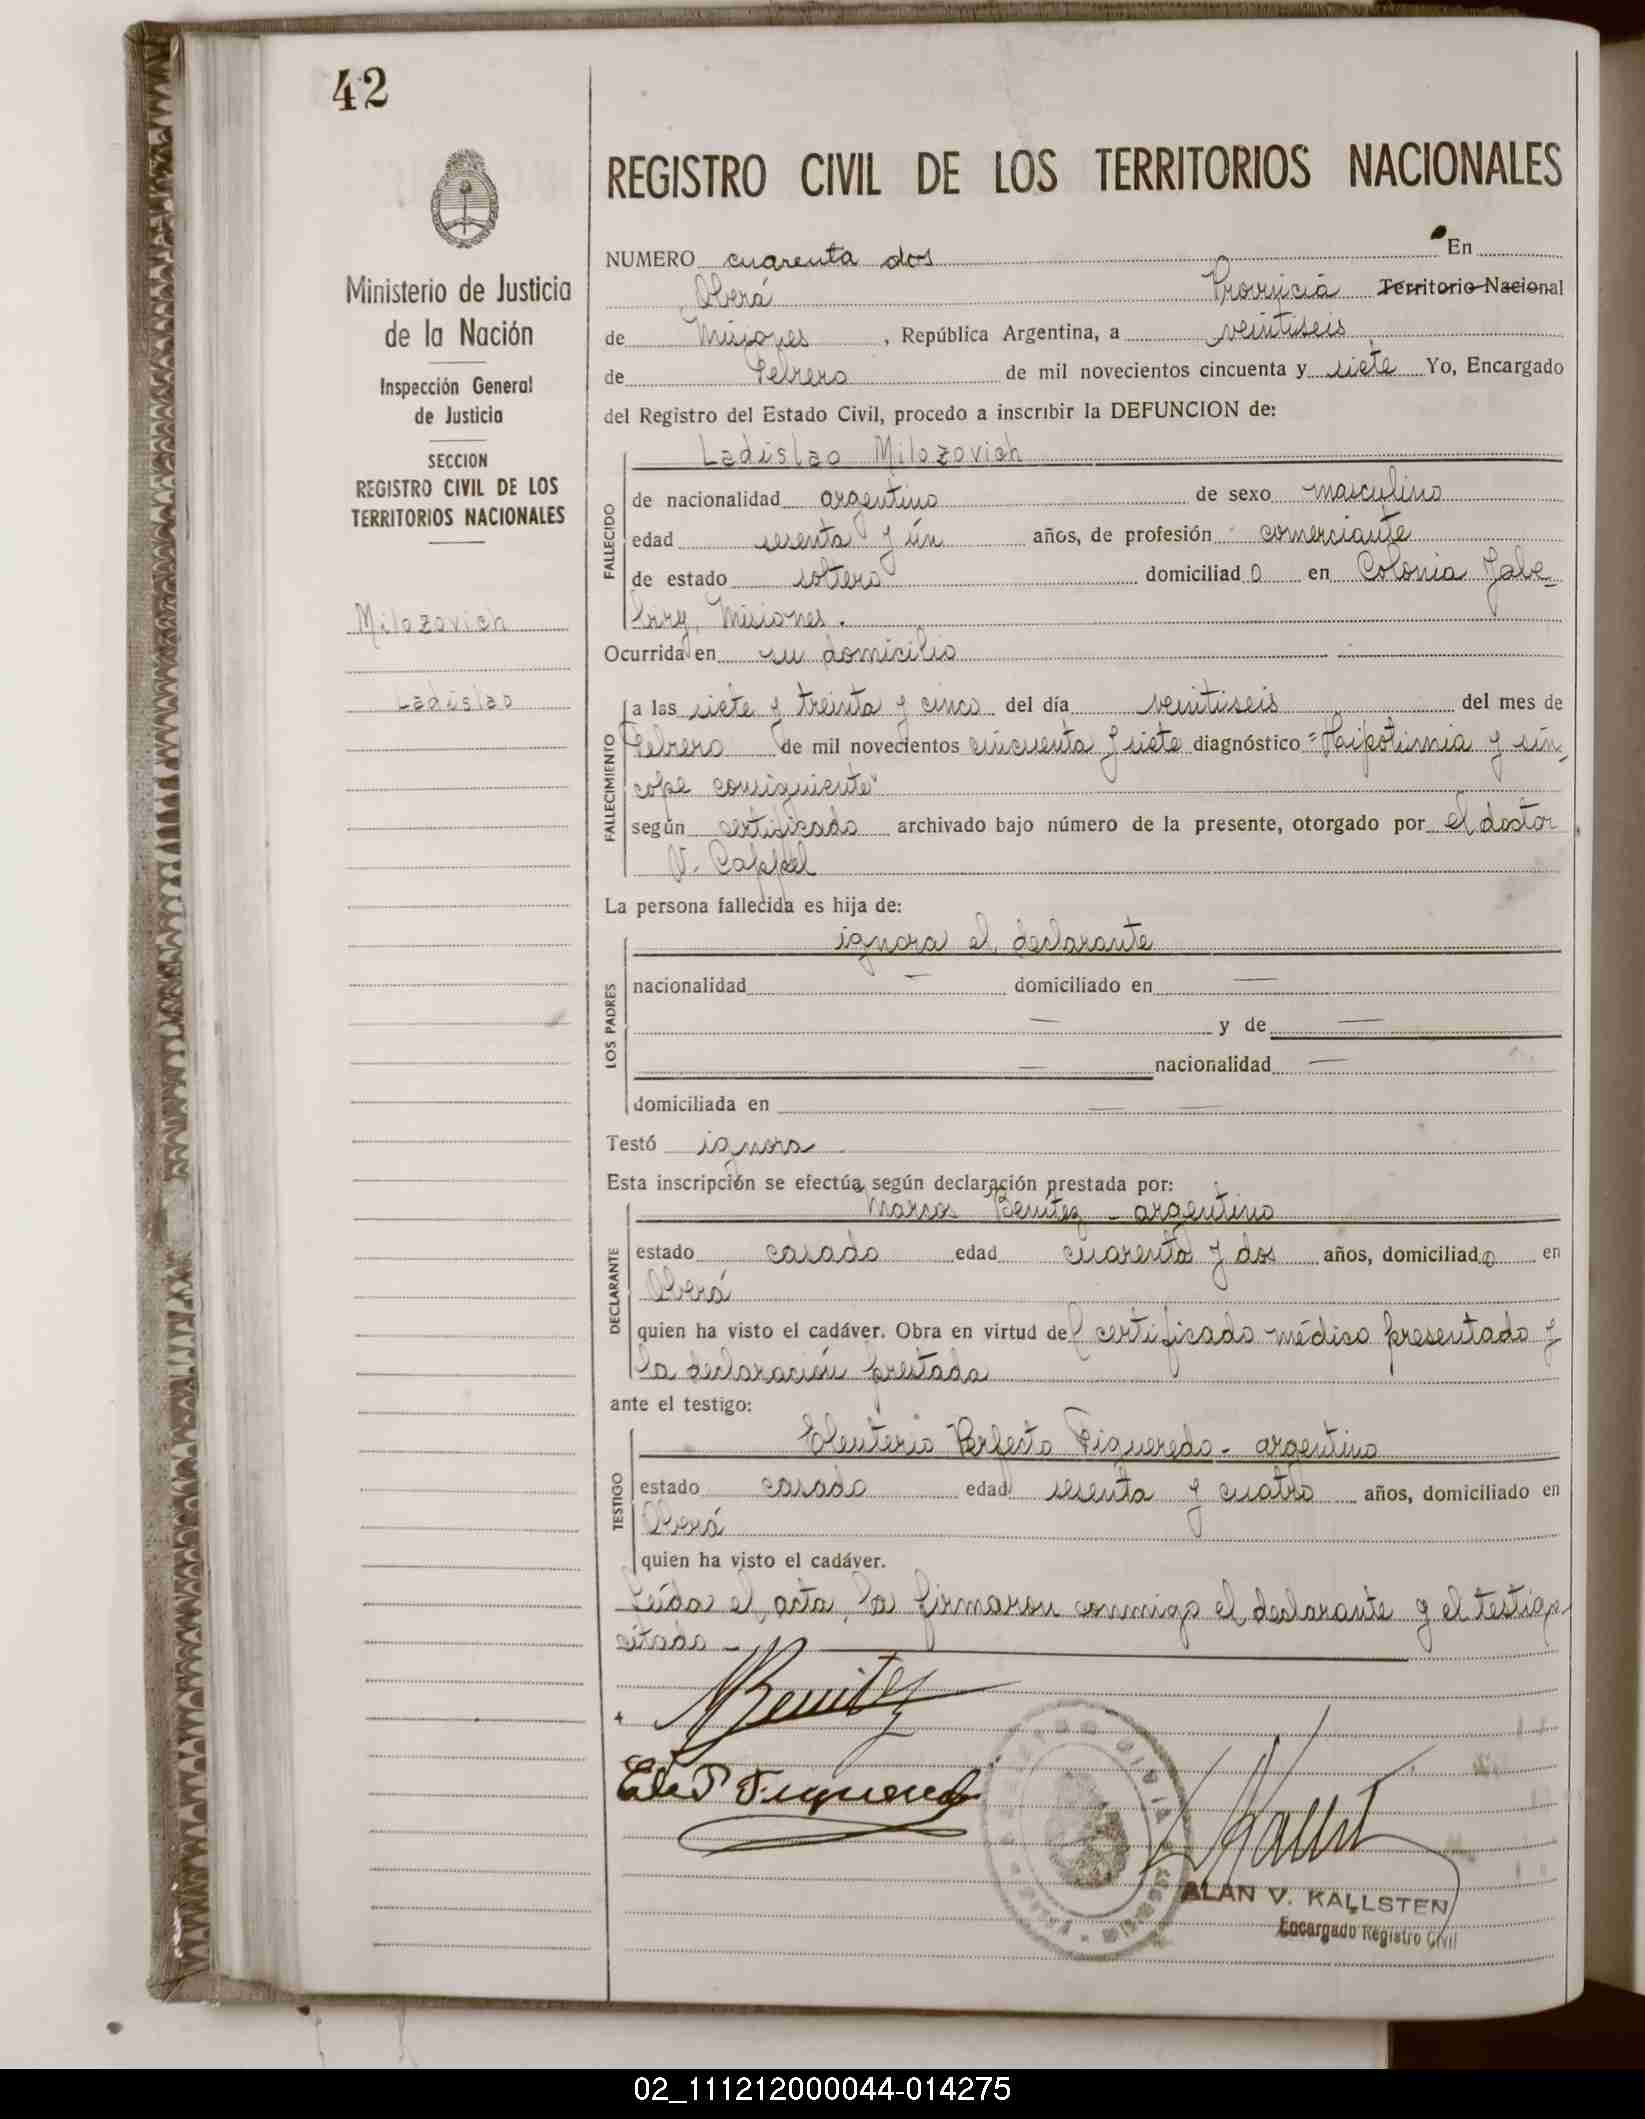 42
Ministerio de Justicia
de la Nación
Inspección General
de Justicia
SECCION
REGISTRO CIVIL DE LOS
TERRITORIOS NACIONALES
Milozovich
Ladislao
REGISTRO CIVIL DE LOS TERRITORIOS NACIONALES
NUMERO cuarenta dos En
Oberá Provincia Territorio Nacional
de Misiones, República Argentina, a veintiseis
de Febrero de mil novecientos cincuenta y siete Yo, Encargado
del Registro del Estado Civil, procedo a inscribir la DEFUNCION de:
FALLECIDO
Ladislao Milozovich
de nacionalidad argentino de sexo masculino
edad sesenta y ún años, de profesión comerciante
de estado soltero domiciliado en Colonia Yabe-
biry, Misiones.
Ocurrida en su domicilio
FALLECIMIENTO
a las siete y treinta y cinco del día veintiseis del mes de
Febrero de mil novecientos cincuenta y siete diagnóstico "Haipotimia y sín-
cope consiguiente"
según certificado archivado bajo número de la presente, otorgado por el doctor
V. Cappel
La persona fallecida es hija de:
LOS PADRES
ignora el declarante
nacionalidad — domiciliado en —
— y de —
— nacionalidad —
domiciliada en — —
Testó ignora
Esta inscripción se efectúa según declaración prestada por:
DECLARANTE
Marcos Benítez - argentino
estado casado edad cuarenta y dos años, domiciliado en
Oberá
quien ha visto el cadáver. Obra en virtud del certificado médico presentado y
la declaración prestada
ante el testigo:
TESTIGO
Eleuterio Perfecto Figueredo - argentino
estado casado edad sesenta y cuatro años, domiciliado en
Oberá
quien ha visto el cadáver.
Leída el acta, la firmaron conmigo el declarante y el testigo
citado -
MBenitez
Ele P Figueredo
REGISTRO CIVIL
Kallst
ALAN V. KALLSTEN
Encargado Registro Civil
02_111212000044-014275